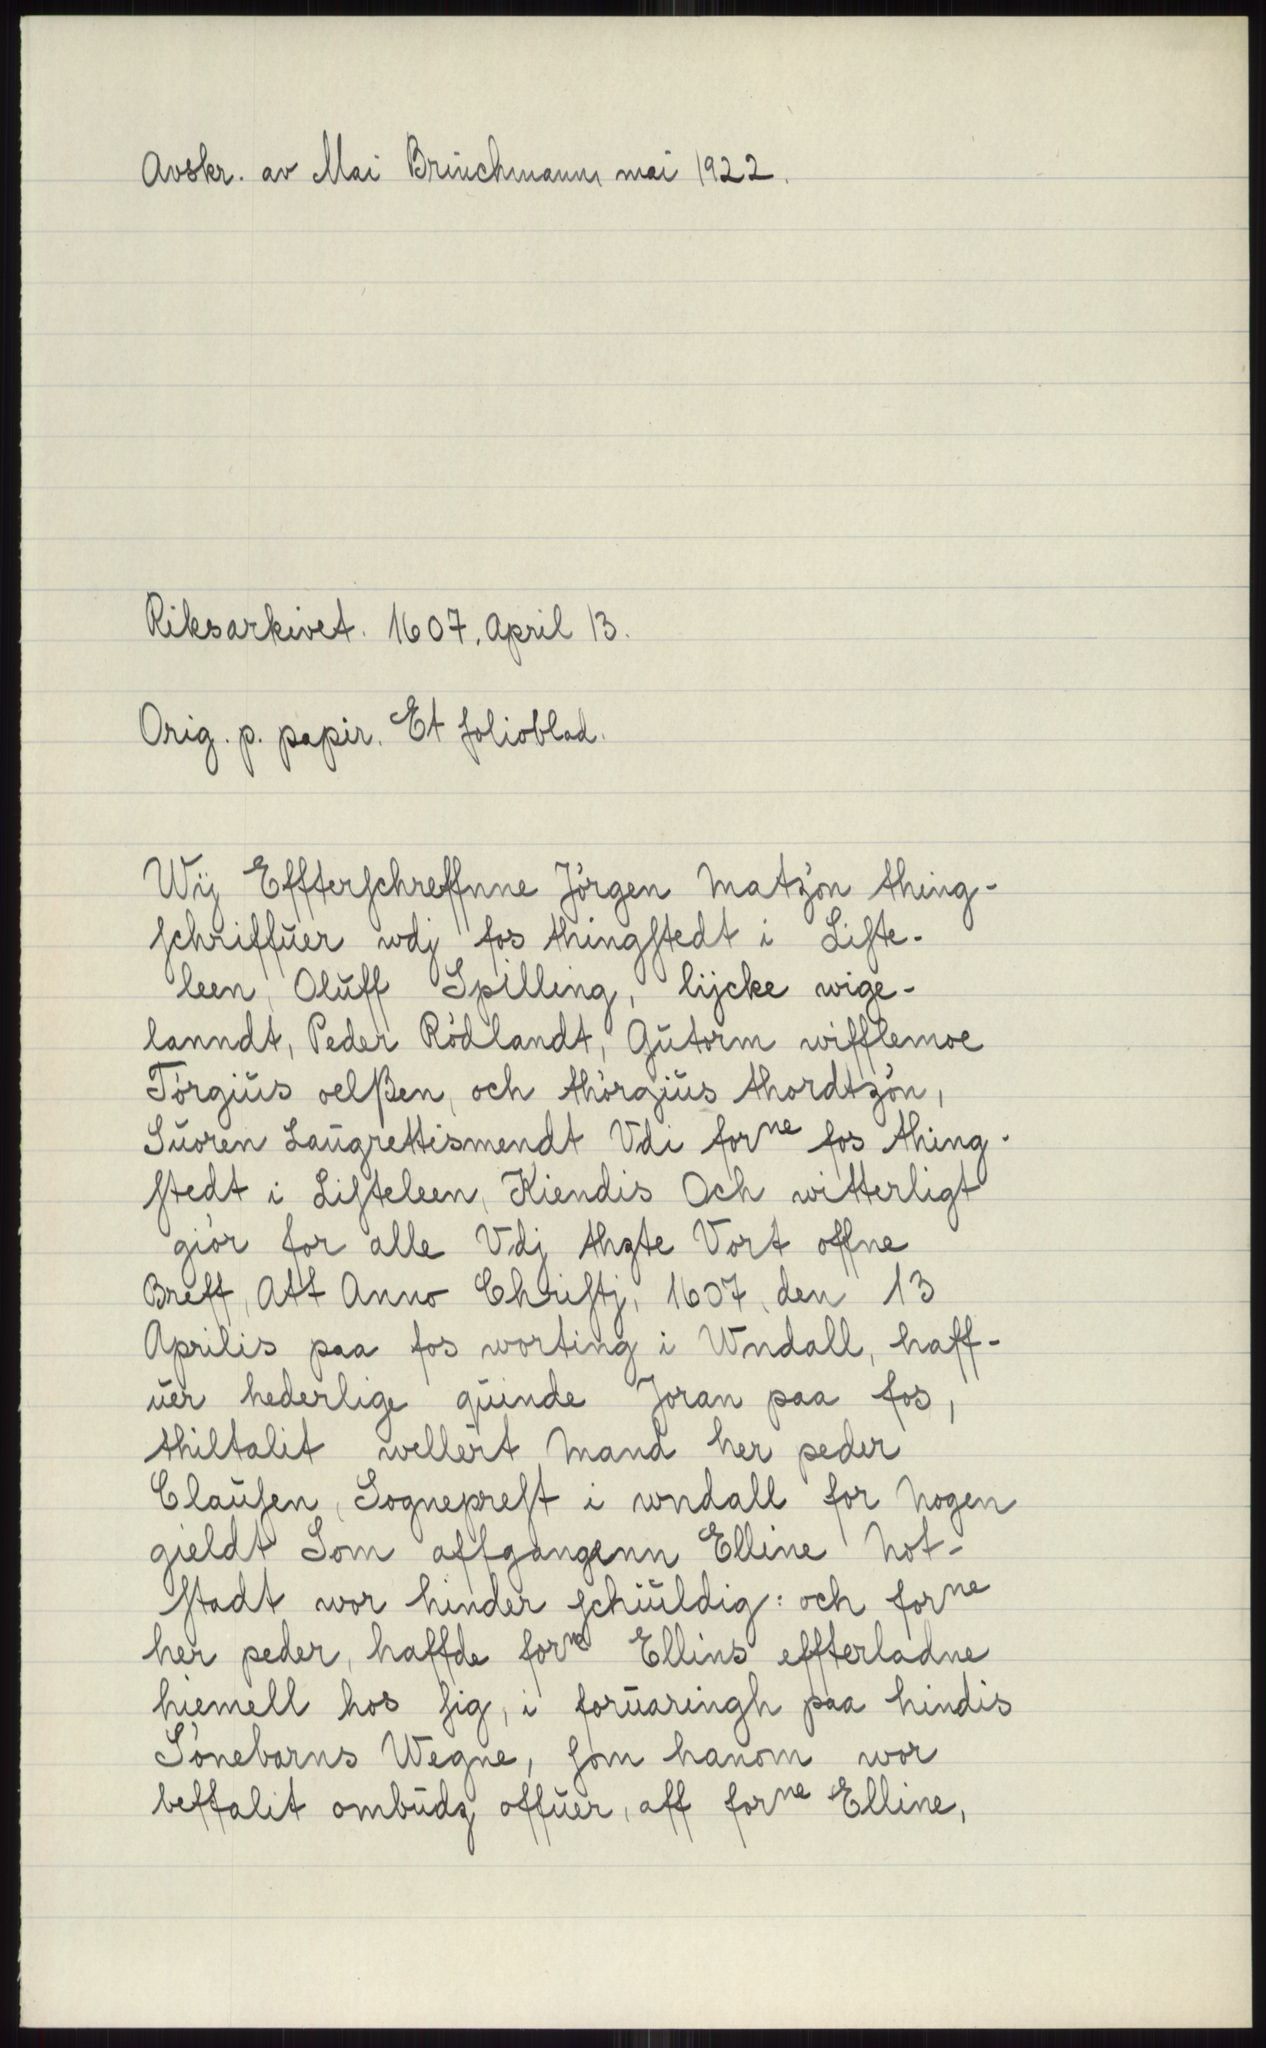 Avskr. av Mai Brinchmann mai 1922.
Riksarkivet. 1607. April 13.
Orig. p. papir. Et folioblad.
Wij Effterschreffnne Jörgen Matzön thing-
schriffŭer wdj fos thingstedt i Liste-
leen, Olŭff Spilling, lijcke wige-
lanndt, Peder Rödlandt, Gŭtorm wifflemoe
Törgiŭs oelßen, och thörgiŭs thordtzön,
Sŭoren Laŭgrettismendt Vdi forne fos thing-
stedt i Listeleen, Kiendis Och witterligt
giör for alle Vdj thzte Vort offne
Breff, Att Anno Christj, 1607, den 13
Aprilis paa fos worting i Wndall, haff-
ŭer hederlige qŭinde Joran paa fos,
thiltalit wellert Mand her peder
Claŭsen, Sogneprest i wndall for Nogen
gieldt Som affgangenn Elline Not-
stadt wor hinder schŭldig: och forne
her peder, haffde forne Ellins effterladne
hiemell hos sig, i forŭaringh paa hindis
Sönebarns Wegne, som hanom wor
beffalit ombŭdz offŭer, aff forne Elline,